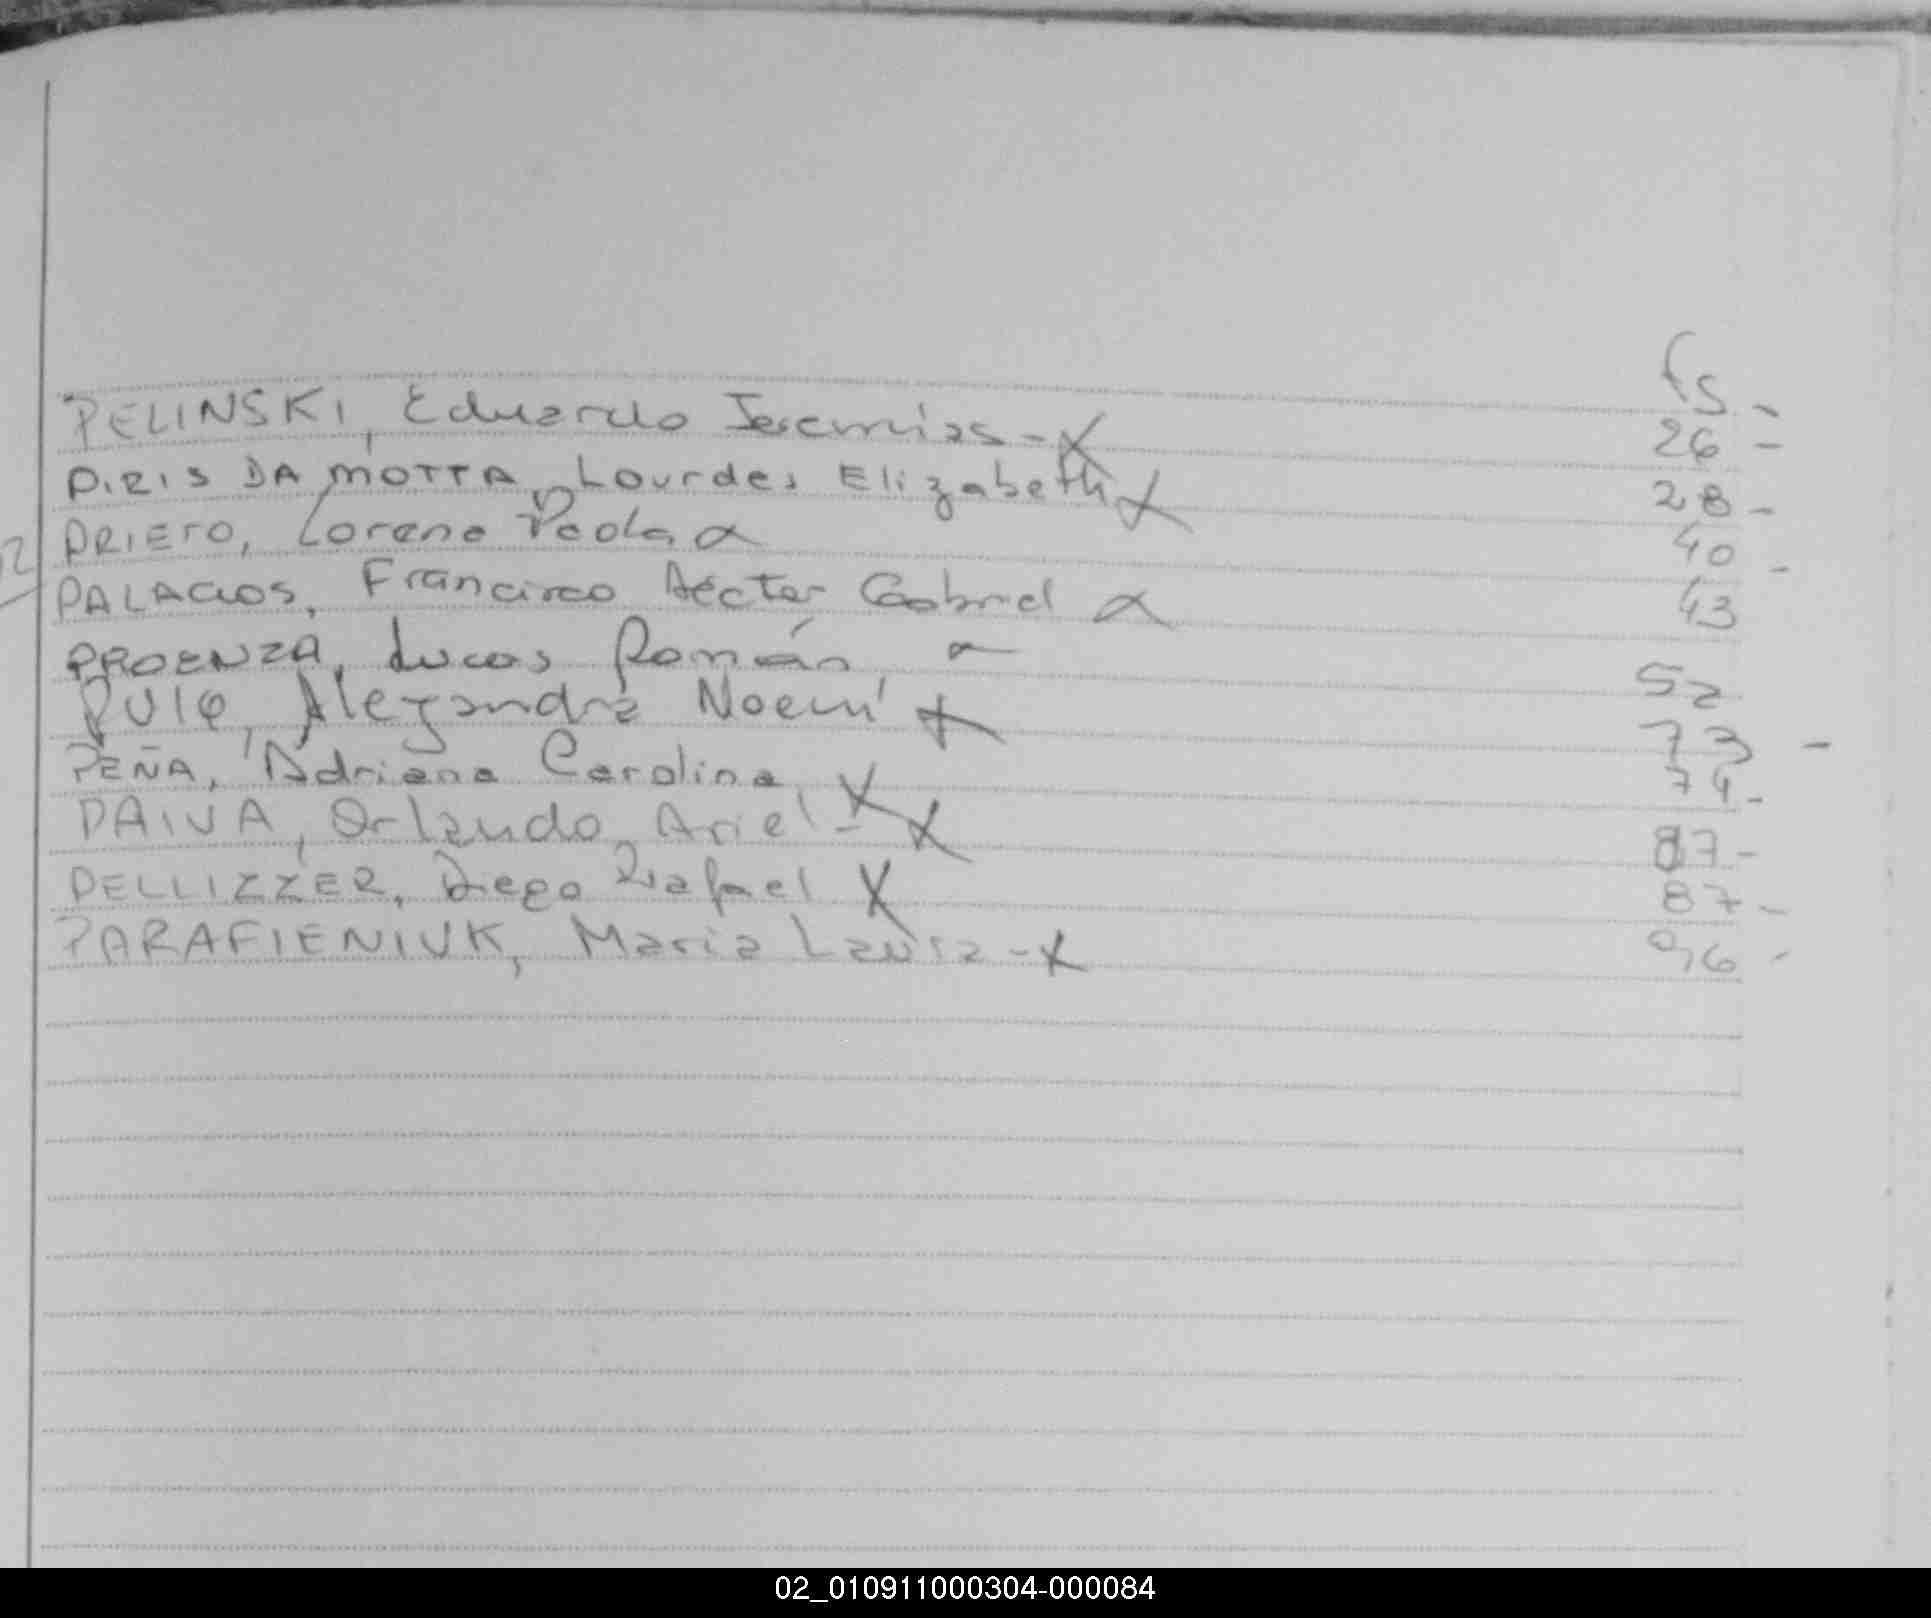 fs -
PELINSKI, Eduardo Jeremias - X 26 -
PIRIS DA MOTTA, Lourdes Elizabeth X 28 -
PRIETO, Lorena Paola X 40 -
PALACIOS, Francisco Héctor Gabriel X 43
PROENZA, Lucas Román 52
PUIG, Alejandra Noemí X 73 -
PEÑA, Adriana Carolina X 74 -
PAIVA, Orlando Ariel - X 87 -
PELLIZZER, Diego Rafael X 87 -
PARAFIENIUK, Maria Laura - X 96 -
02_010911000304-000084